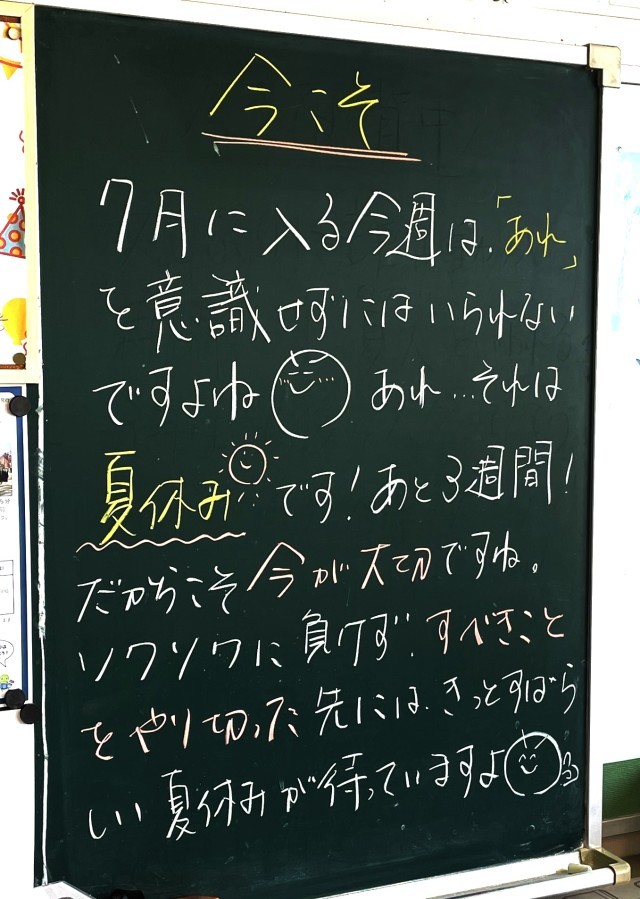 今こそ
7月に入る今週は、「あれ」
を意識せずにはいられない
ですよね あれ…それは
夏休み です!あと3週間!
だからこそ今が大切ですね。
ソワソワに負けず、すべきこと
をやり切った先には、きっとすばら
しい夏休みが待っていますよ